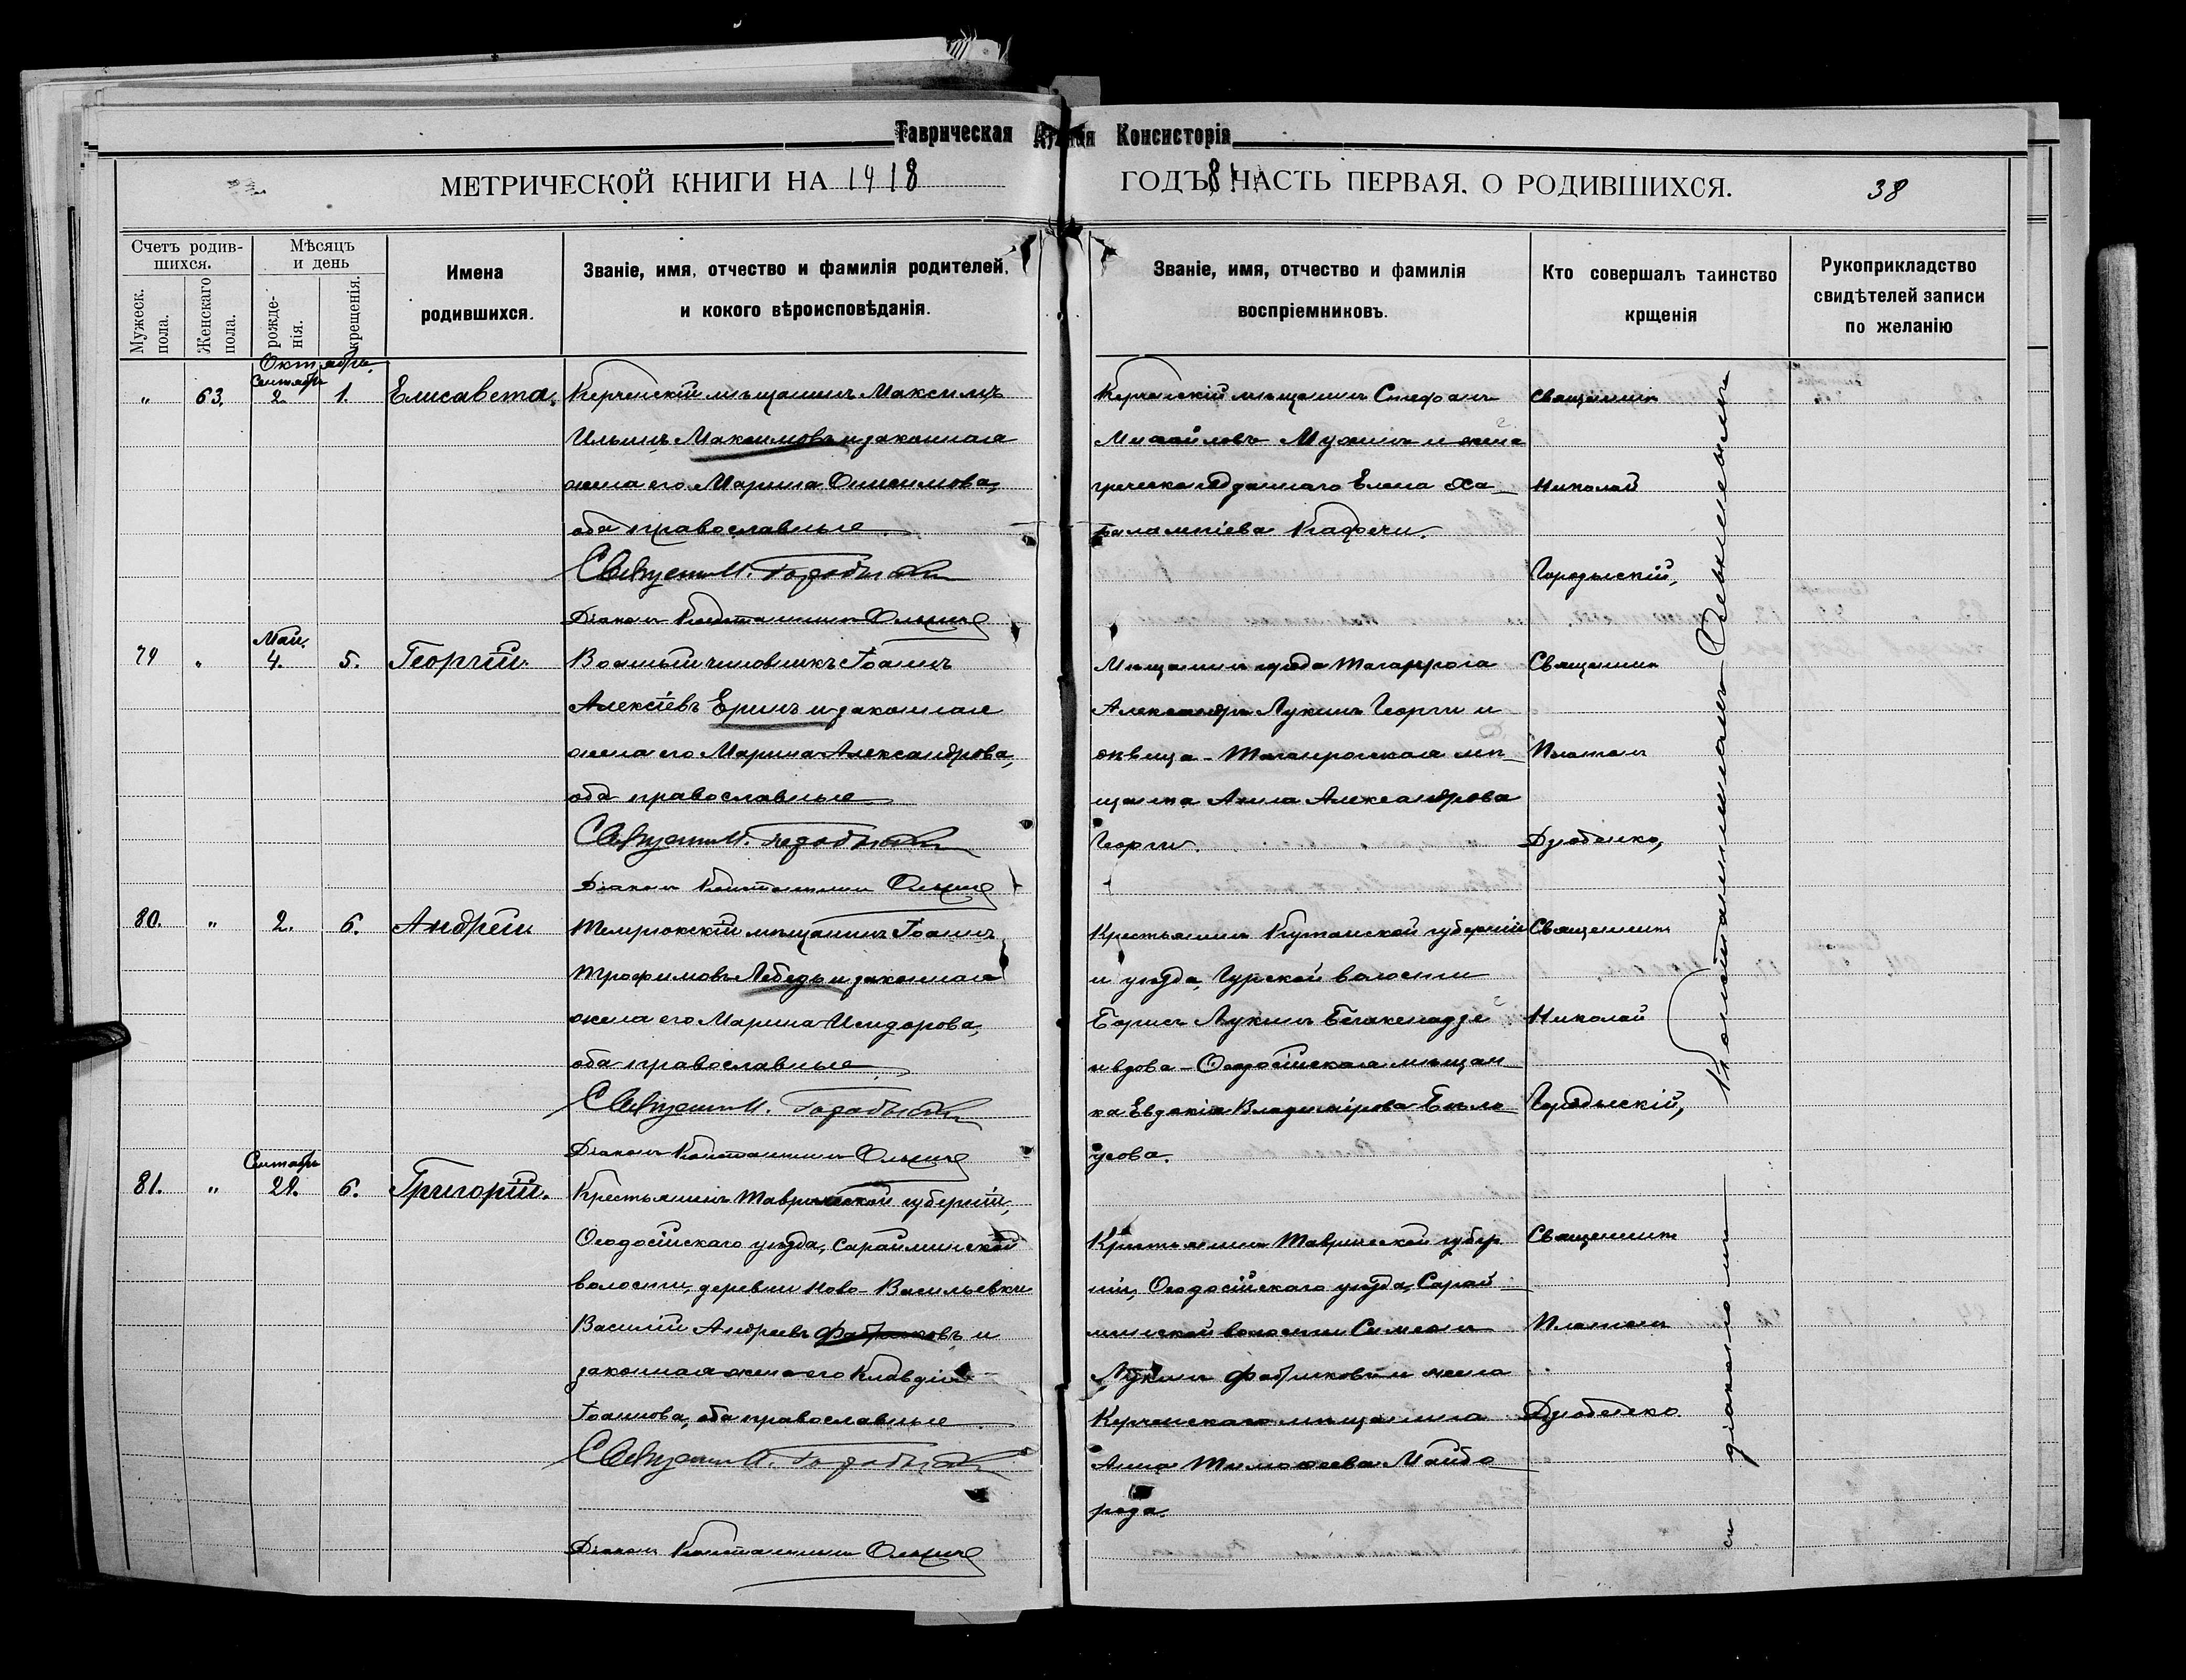 Таврическая Духовная Консисторія
МЕТРИЧЕСКОЙ КНИГИ НА 1918
ГОДЪ ЧАСТЬ ПЕРВАЯ. О РОДИВШИХСЯ.
38
Счетъ родив-
шихся.
Мужеск.
пола.
Женскаго
пола.
Мѣсяцъ
и день
рожде-
нія.
крещенія.
Имена
родившихся.
Званіе, имя, отчество и фамилія родителей,
и кокого вѣроисповѣданія.
Званіе, имя, отчество и фамилія
воспріемниковъ.
Кто совершалъ таинство
крщенія
Рукоприкладство
свидѣтелей записи
по желанію
Октябрь.
Сентябрь
" 63. 2. 1. Елисавета.
Керченскій мѣщанинъ Максимъ
Ильинъ Максимовъ и законная
жена его Марина Онисимова,
оба православные
Діаконъ Константинъ
Керченскій мѣщанинъ Стефанъ
Михайловъ Мухинъ и жена
греческоподданнаго Елена Ха-
ралампіева Кафечи.
Священникъ
Николай
Городыскій,
Май.
79 " 4. 5. Георгій.
Военный чиновникъ Іоаннъ
Алексіевъ Еринъ и законная
жена его Марина Александрова,
оба православные
Діаконъ Константинъ
Мѣщанинъ города Таганрога
Александръ Лукинъ Георги и
дѣвица - Таганрогская мѣ-
щанка Анна Александрова
Георги.
Священникъ
Платонъ
Дзюбенко,
80. " 2. 6. Андрей
Темрюкскій мѣщанинъ Іоаннъ
Трофимовъ Лебедь и законная
жена его Марина Исидорова,
оба православные
Діаконъ Константинъ
Крестьянинъ Кутаиской губерніи
и уѣзда, Гурской волости
Борисъ Лукинъ
и вдова - Ѳеодосійская мѣщан-
ка Евдокія Владимірова Бѣло-
усова.
Священникъ
Николай
Городыскій,
Сентябрь
81. " 29. 6. Григорій.
Крестьянинъ Таврической губерніи,
Ѳеодосійскаго уѣзда, Сарайминской
волости, деревни Ново-Васильевки
Василій Андреевъ Фабриковъ и
законная жена его Клавдія
Іоаннова, оба православные
Діаконъ Константинъ
Крестьянинъ Таврической губер-
ніи, Ѳеодосійскаго уѣзда, Сарай-
минской волости Симеонъ
Лукинъ Фабриковъ и жена
Керченскаго мѣщанина
Анна Тимоѳеева Майбо-
рода.
Священникъ
Платонъ
Дзюбенко.
съ діакономъ Константиномъ